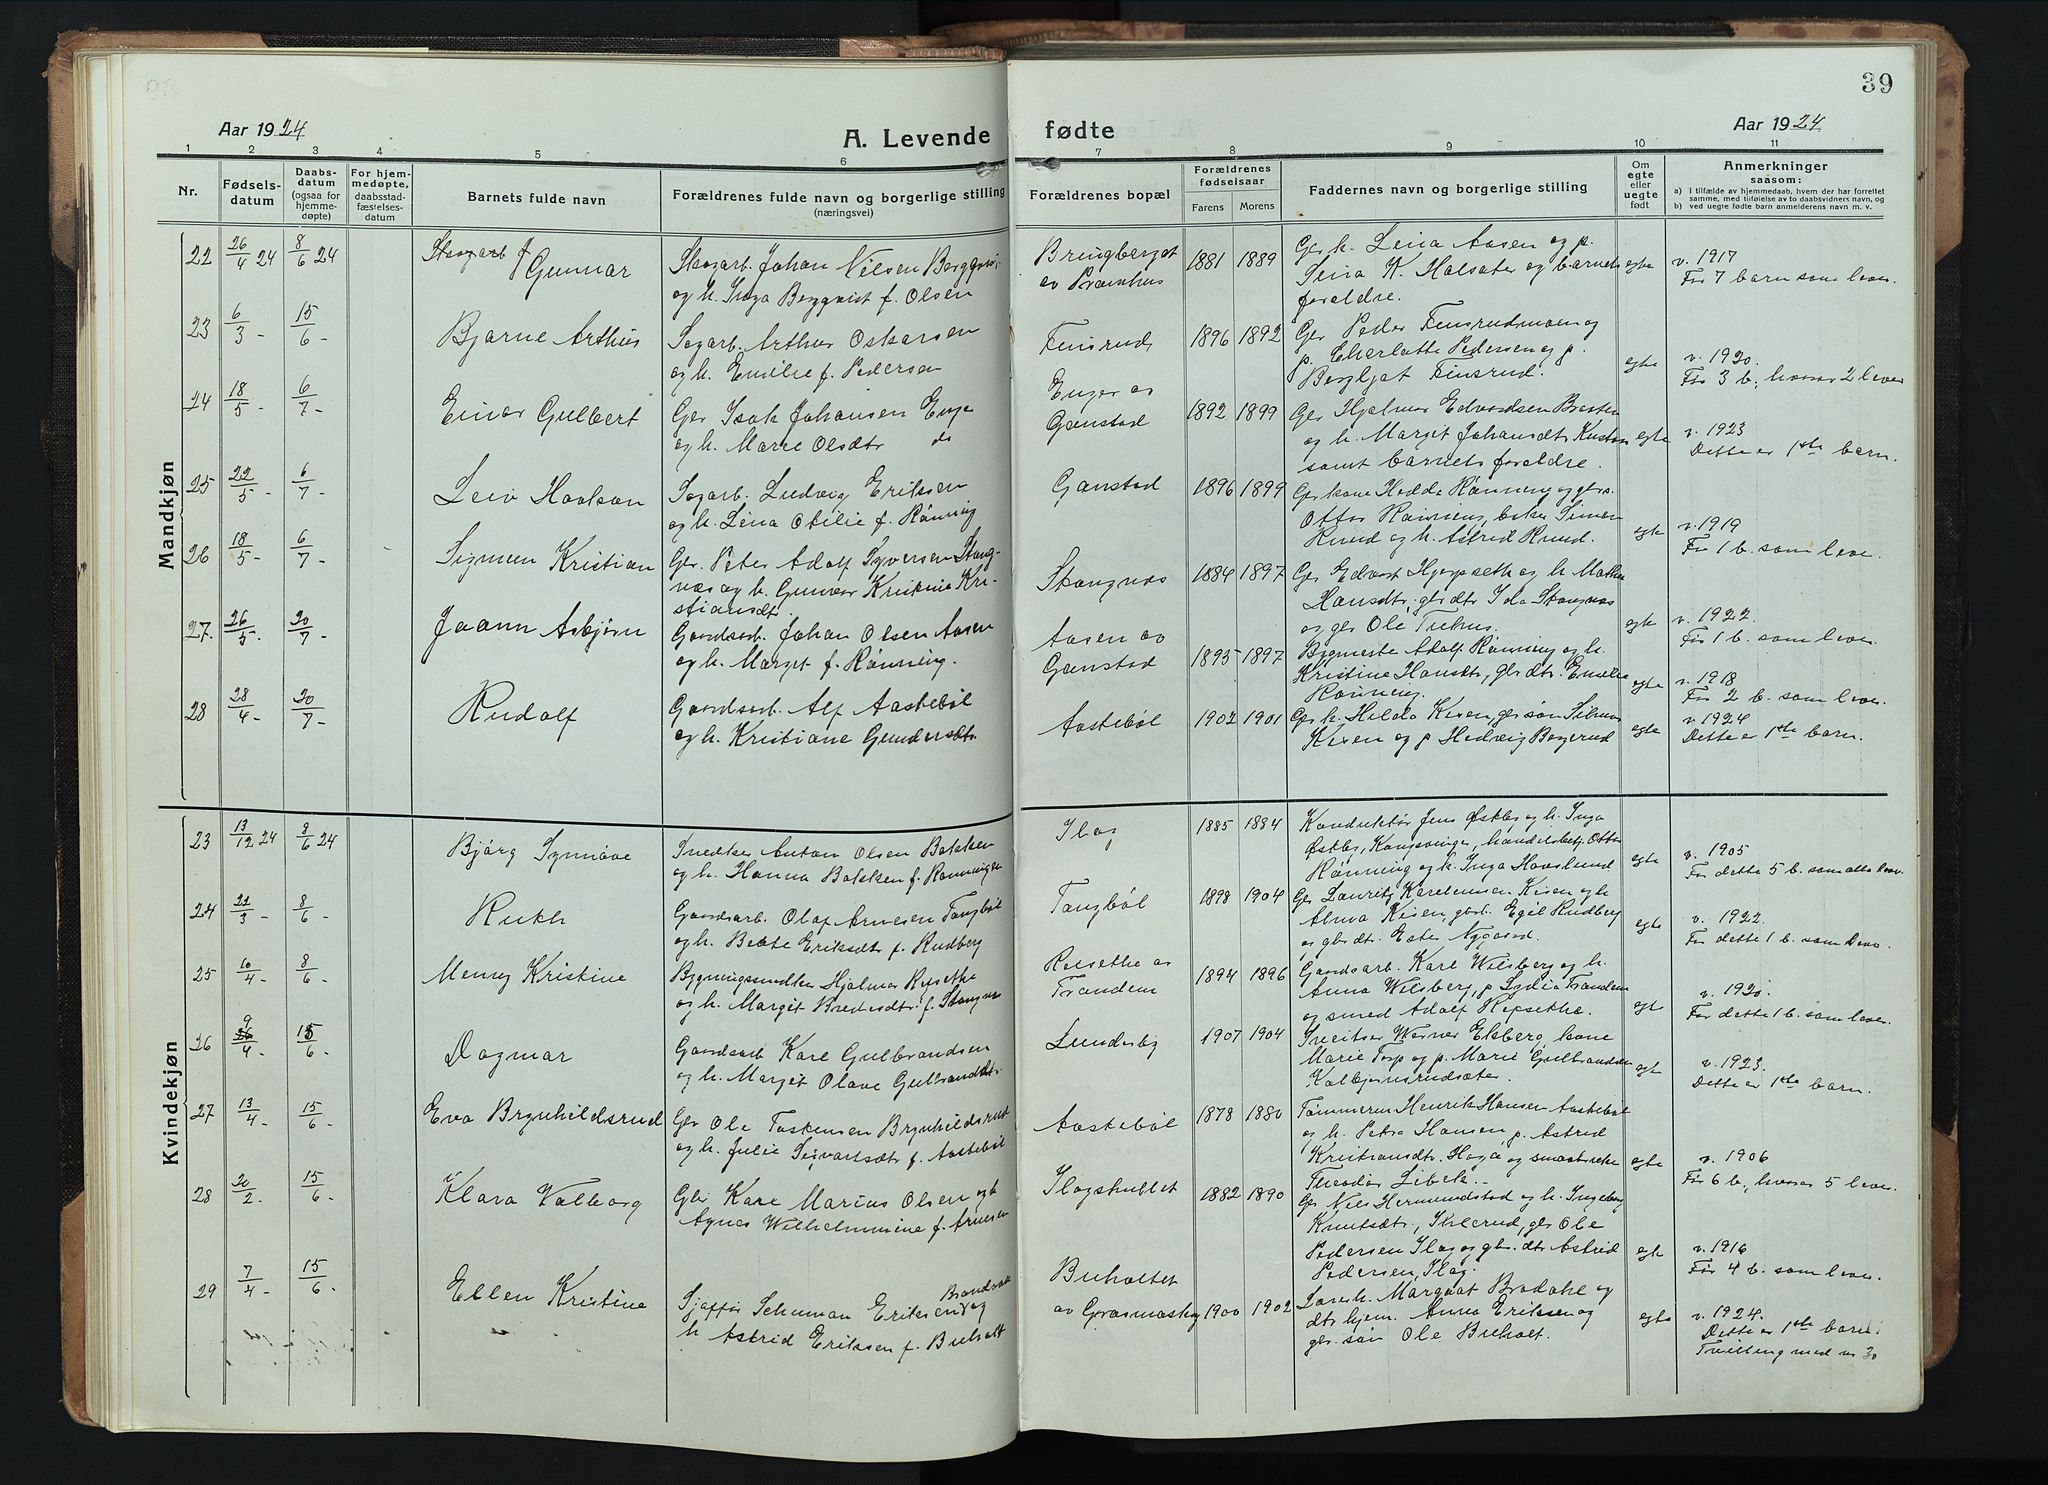 39
Aar 1924
A. Levende
fødte
Aar 1924
1 2 3 4 5 6 7 8 9 10 11
Nr.
Fødsels-
datum
Daabs-
datum
(ogsaa for
hjemme-
døpte)
For hjem-
medøpte,
daabsstad-
fæstelses-
datum
Barnets fulde navn
Forældrenes fulde navn og borgerlige stilling
(næringsvei)
Forældrenes bopæl
Forældrenes
fødselsaar
Farens Morens
Faddernes navn og borgerlige stilling
Om
egte
eller
uegte
født
Anmerkninger
saasom:
a) I tilfælde av hjemmedaab, hvem der har forrettet
samme, med tilføielse av to daabsvidners navn, og
b) ved uegte fødte barn anmelderens navn m. v.
Mandkjøn
22 26/4 24 8/6 24 Gunnar
Skogarb. Johan Nilsen
og h. Inga Bergqvist f. Olsen
Bringberget
av Pramhus
1881 1889
Gbr h. Lina Aasen og p.
og barnets
foreldre.
egte
v. 1917
Før 7 barn som lever.
23 6/3 - 15/6 - Bjarne Arthur
Sagarb. Arthur Oskarsen
og h. Emilie f. Pedersen
Finsrud
1896 1892
Gbr Peder Finsrudmoen og
p. Charlotte Pedersen og p.
Bergljot Finsrud.
egte
v. 1920
Før 3 b., hvorav 2 lever
24 18/5 - 6/7 - Einar Gulbert
Gbr Isak Johansen Enger
og h. Marie Olsdtr do
Enger av
Ganstad
1892 1899
Gbr Hjalmar Edvardsen Braaten
og h. Margit Johansdtr
samt barnets foreldre.
egte
v. 1923
Dette er 1ste barn.
25 22/5 - 6/7 - Leiv Haakon
Sagarb. Ludvig Eriksen
og h. Lina Otilie f. Rønning
Ganstad
1896 1899
Gbr kone Hedda Rønning og gbrs.
Ottar Rønning, Simen
Ruud og h. Astrid Ruud.
egte
v. 1919
Før 1 b. som lever.
26 18/5 - 6/7 - Sigmun Kristian
Gbr. Peter Adolf Syversen Stang-
næs og h. Gunvor Kristine Kri-
stiansdtr.
Stangnæs
1884 1897
Gbr Edvart og h. Mathea
Hansdtr, gbrdtr. Ida Stangnæs
og gbr Ole
egte
v. 1922
Før 1 b. som lever.
27. 26/5 - 20/7 - Joann Asbjørn
Gaardsarb. Johan Olsen Aasen
og h. Margit f. Rønning.
Aasen av
Ganstad
1895 1897
Adolf Rønning og h.
Kristine Hansdtr, gbrdtr. Emilie
Rønning.
egte
v. 1918
Før 2 b. som lever.
28 28/4 - 20/7 - Rudolf
Gaardsarb. Alf Aastebøl
og h. Kristiane Gundersdtr.
Aastebøl
1902 1901
Gbr h. Hilda Kixen, gbr søn
Kixen og p Hedvig Bogerud
egte
v. 1924
Dette er 1ste barn.
Kvindekjøn
23 13/12 24 8/6 24 Bjørg Synnøve
Snedker Anton Olsen Bakken
og h. Hanna Bakken f. Rønningen
Ilag
1885 1884
Konduktør Jens Østby og h. Inga
Østby, Kongsvinger, handelsbetj. Ottar
Rønning og h. Inga Haavslund
egte
v. 1905
Før dette 5 b. som alle lever.
24 21/3 - 8/6 - Ruth
Gaardsarb. Olaf Arnesen Tangbøl
og h. Beate Eriksdtr f. Rudberg
Tangbøl
1898 1904
Gbr Lauritz Kareliussen Kixen og h
Alma Kixen, gbrs. Egil Rudberg
og gbrdtr. Ester Nygaard.
egte
v. 1922.
Før dette 1 b. som lever.
25 10/4 - 8/6 - Menny Kristine
Bygningssnedker Hjalmar Repsethe
og h. Margit f. Stangnæs
Repsethe av
Trandem
1894 1896
Gaardsarb. Karl Wilsberg og h.
Anna Wilsberg, p Lydia Trandem
og smed Adolf Repsethe.
egte
v. 1920.
Før dette 1 b. som lever.
26 9/4 - 15/6 - Dagmar
Gaardsarb Karl Gulbrandsen
og h. Margit Olave Gulbrandsdtr.
Lunderby
1907 1904
Sveitser Werner Ekberg, kone
Marie Torp og p. Marie Gulbrandsen
egte
v. 1923.
Dette er 1ste barn.
27 13/4 - 15/6 - Eva Brynhildsrud
Gbr Ole Taskensen Brynhildsrud
og h. Julie Sigvartsdtr f. Aastebøl
Aastebøl
1878 1880
Tømmerm Henrik Hansen Aastebøl
og h. Petra Hansen, p. Astrid
Kristiansdtr. Haga og
Theodor Libek.
egte
v. 1906
Før 6 b., hvorav 5 lever.
28 20/2 - 15/6 - Klara Valborg
Gbr Karl Marius Olsen og h
Agnes Wilhelmmine f. Arnesen
Ilagshultet
1882 1890
Gbr Nils Hermundstad og h. Ingeborg
Knutsdtr., gbr Ole
Pedersen Ilag og gbr. dtr Astrid
Pedersen, Ilag.
egte
v. 1916
Før 4 b. som lever.
29 7/4 - 15/6 - Ellen Kristine
Sjaffør Schuman Eriksen og
h Astrid Eriksen f. Buholt
Buholtet
av Grasmoskog
1900 1902
h. Margit Brodahl og
dtr hjem. Anna Eriksen og
gbr. søn Ole Buholt.
egte
v. 1924.
Dette er 1ste barn.
Tvilling med nr 30